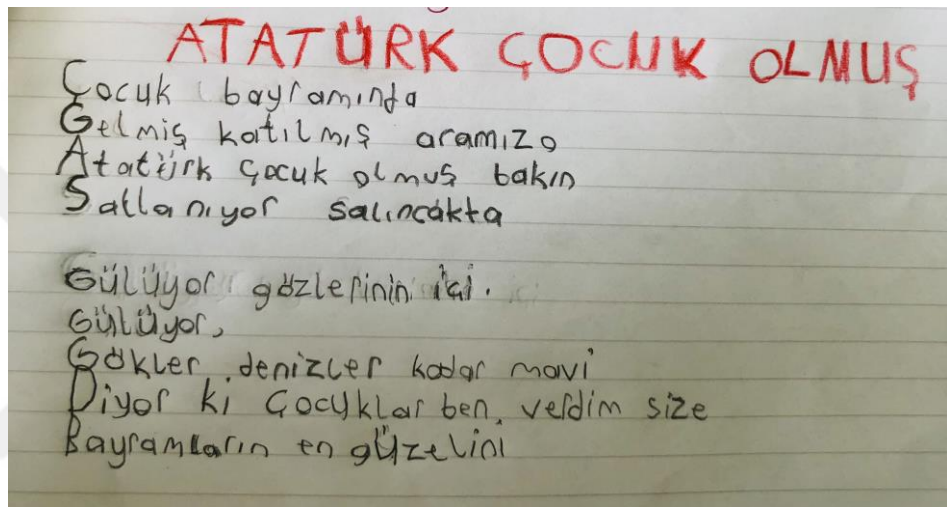 ATATÜRK ÇOCUK OLMUŞ
Çocuk bayramında
Gelmiş katılmış aramıza
Atatürk çocuk olmuş bakın
Sallanıyor salıncakta
Gülüyor gözlerinin içi.
Gülüyor,
Gökler, denizler kadar mavi
Diyor ki çocuklar ben, verdim size
Bayramların en güzelini